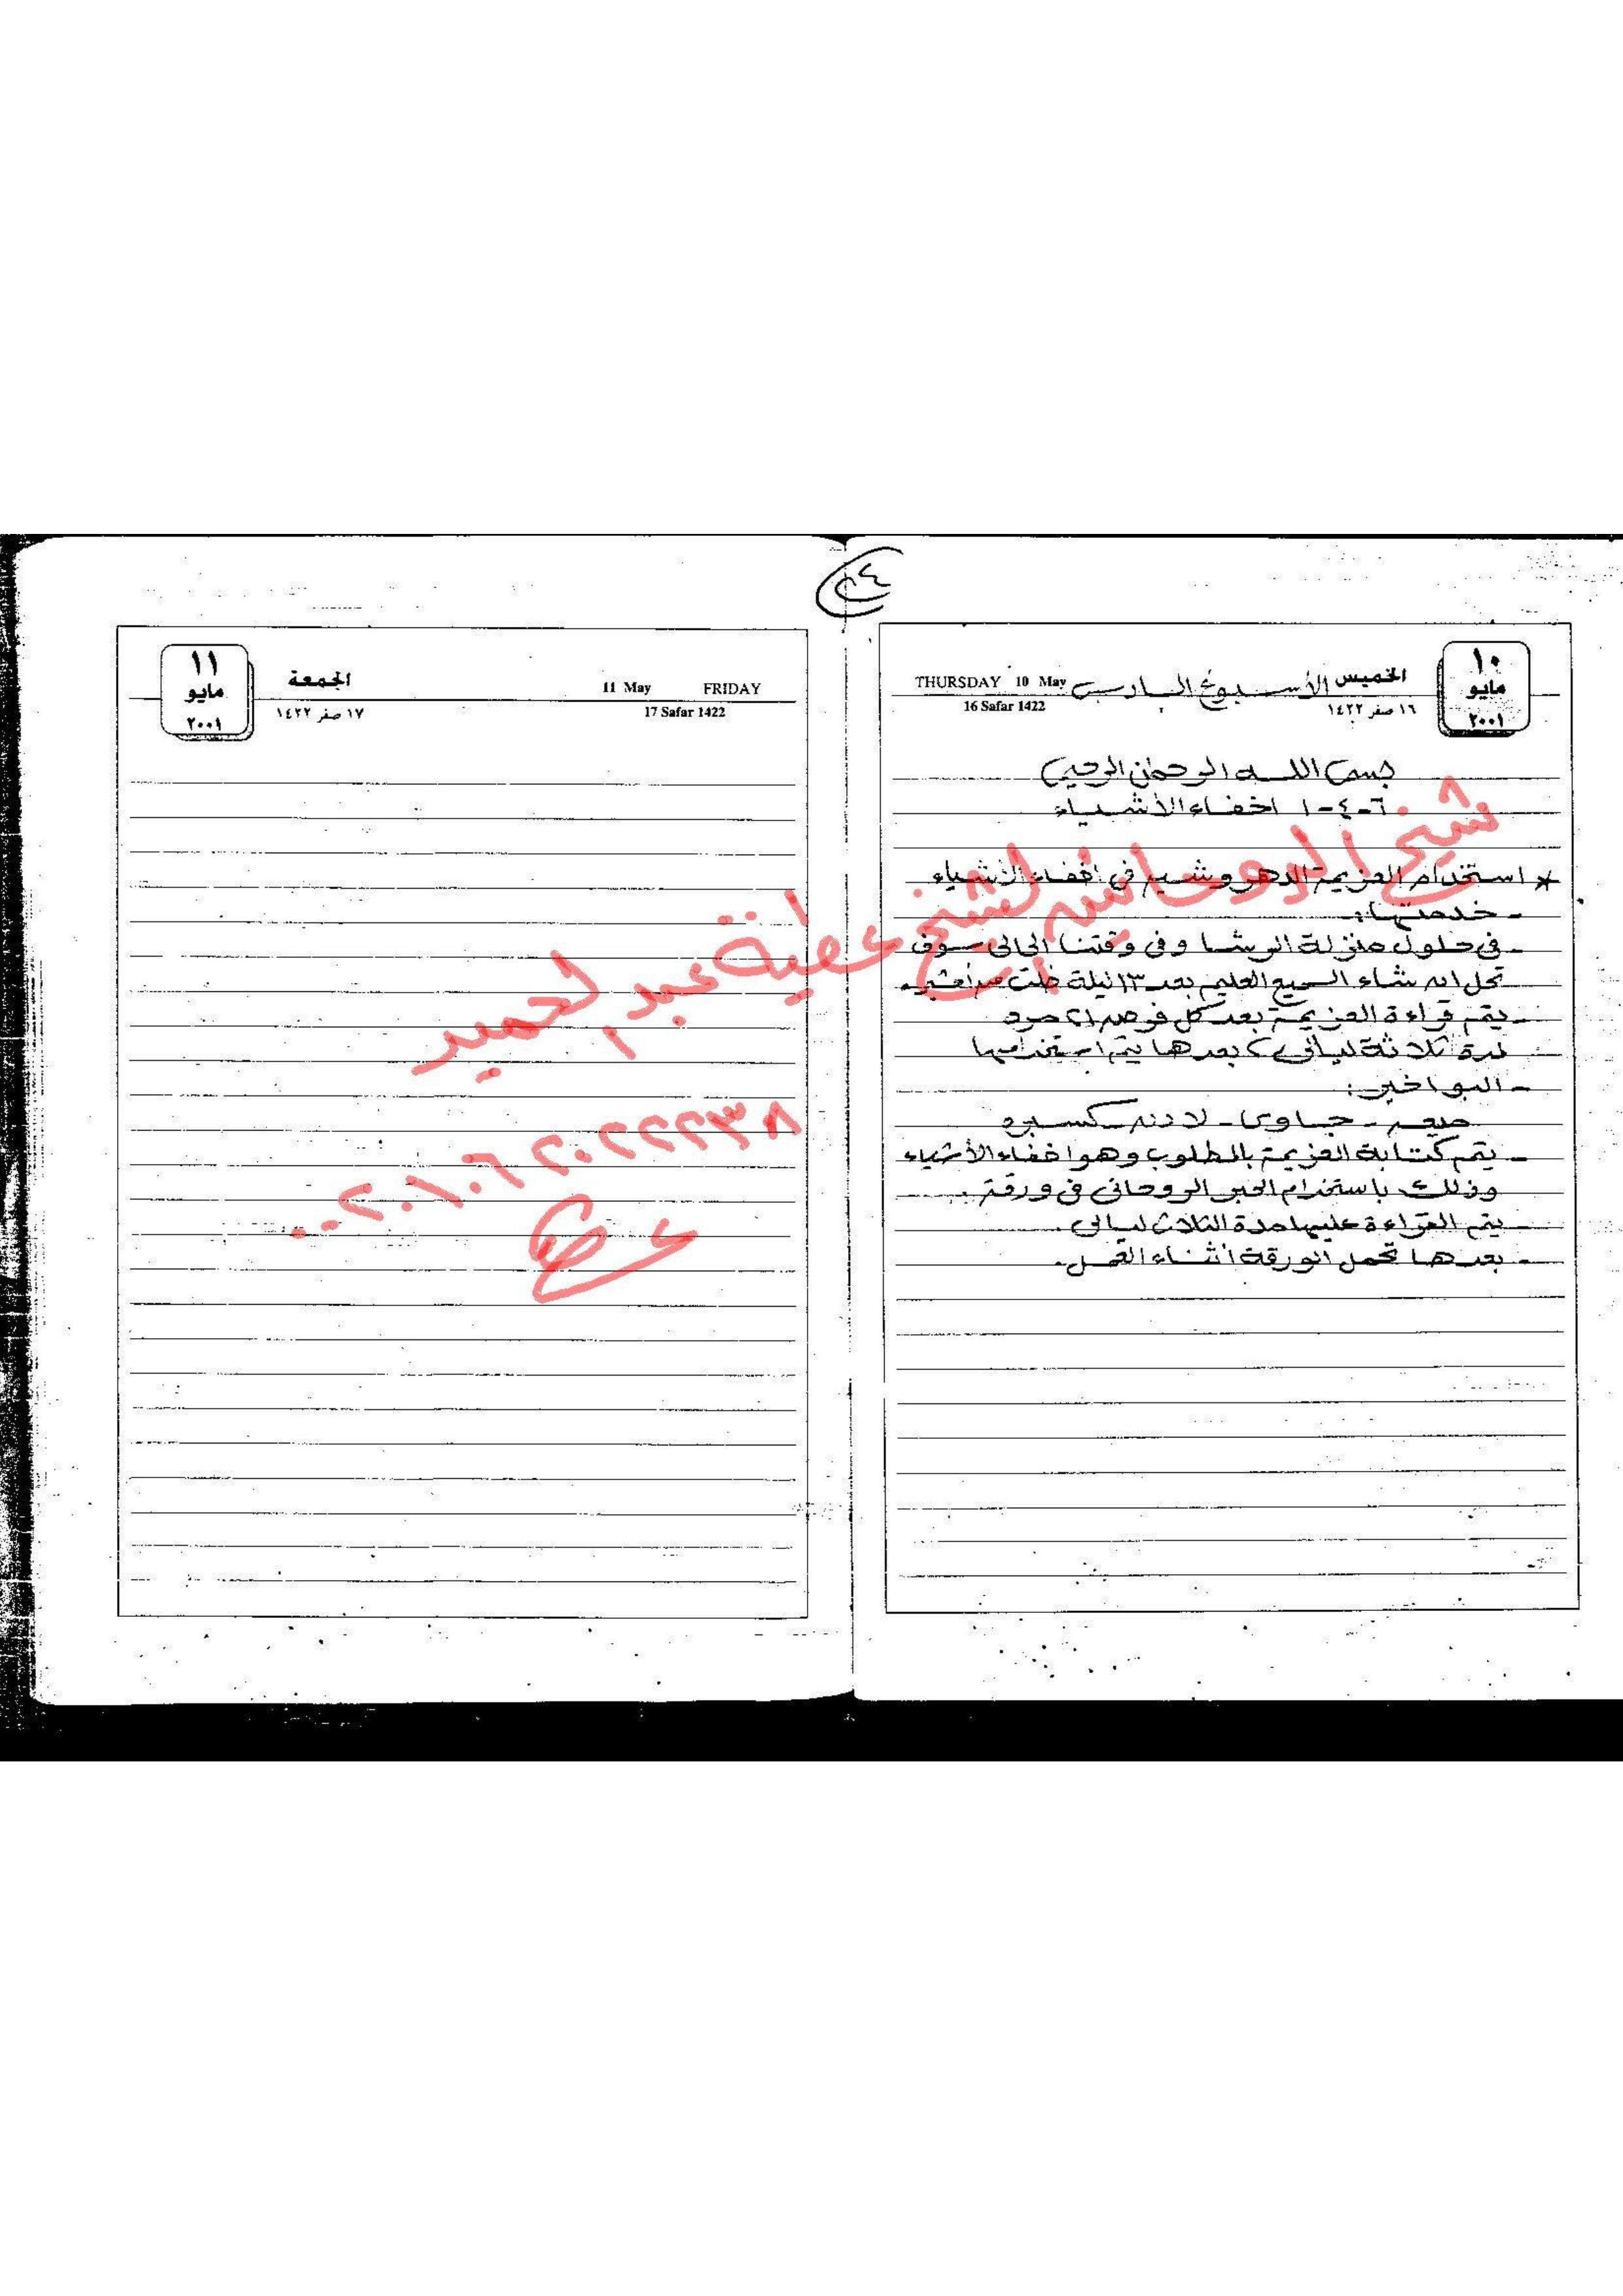 ٢٤
١٠
مايو
٢٠٠١
الخميس الأسبوع السادس THURSDAY 10 May
١٦ صفر ١٤٢٢ 16 Safar 1422
بسم اللــه الرحمن الرحيم
٦-٤-١ اخفاء الأشياء
* استخدام العزيمة الدهروشيه في اخفاء الأشياء
- خدمتها:-
- في حلول منزلة الرشا وفى وقتنا الحالى سوف
تحل ان شاء السميع العليم بعد ١٣ ليلة خلت من
- يتم قراءة العزيمة بعد كل فرض ٢١ مره
لمدة ثلاثة ليالى بعدها يتم استخدامها
- البواخير:
ميعه - جاوى - لادن - كسبره
- يتم كتابة العزيمة بالمطلوب وهو اخفاء الأشياء
وذلك باستخدام الحبر الروحانى فى ورقة
- يتم القراءة عليها مدة الثلاث ليالى.
- بعدها تحمل الورقة أثناء العمل.
١١
مايو
٢٠٠١
الجمعة 11 May FRIDAY
١٧ صفر ١٤٢٢ 17 Safar 1422
شيخ الروحانين الشيخ عطية عبد الحميد
٠٠٢٠١٠٦٢٠٢٢٢٣٨